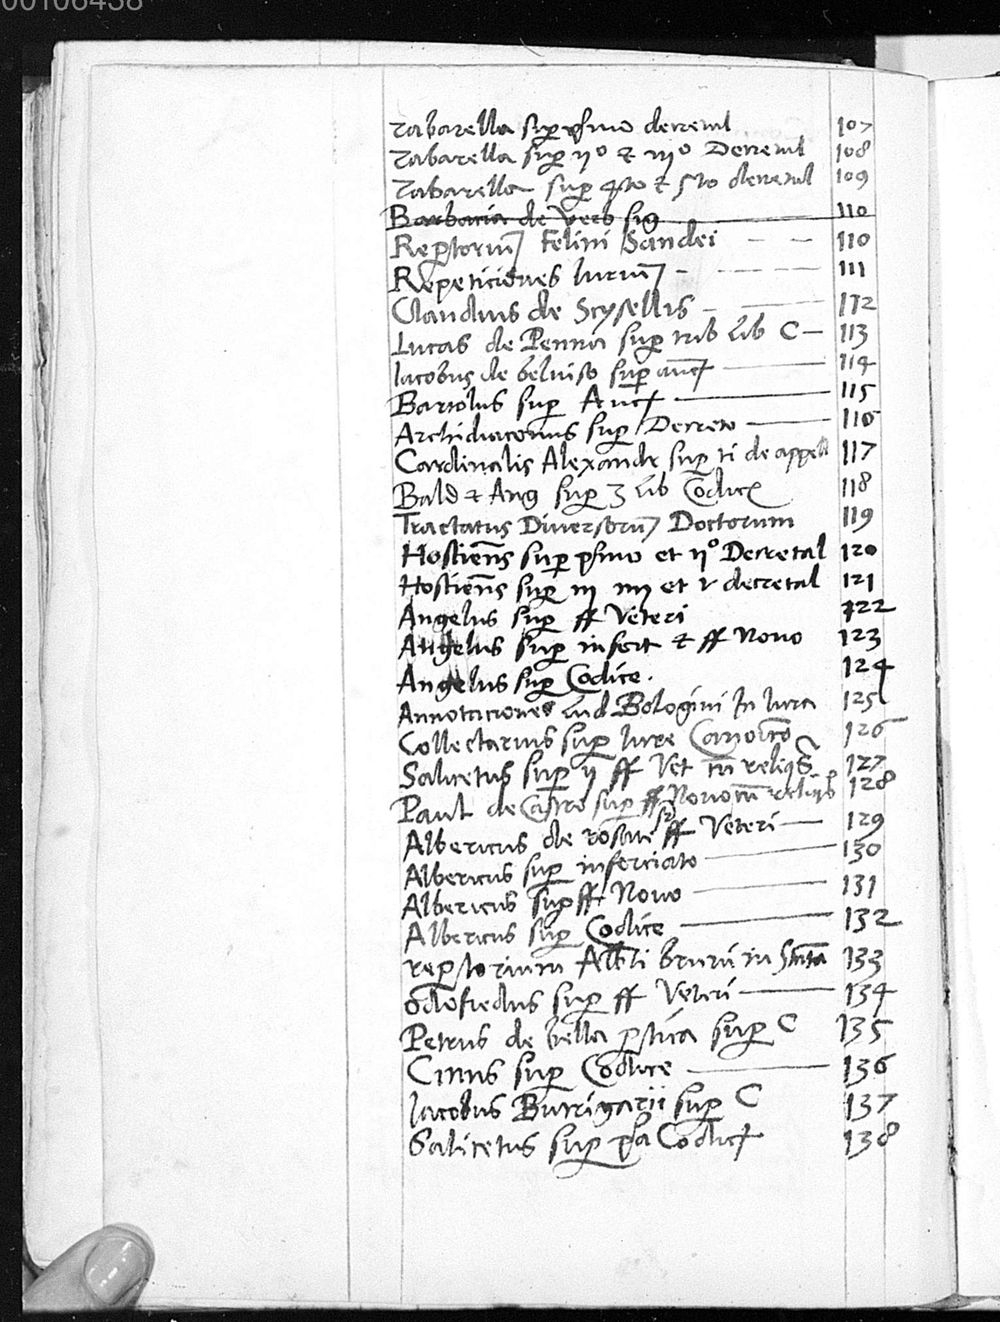 00106438
Zabarella sup pſimo decretal 107
Zabarella sup ijº & iijº Decretal 108
Zabarella sup 4to & 5to decretal 109
Barbacia de Verb sig 110
Reptoriu Felini Sandei 110
Repeticiones Iuriu 111
Claudius de Scysellis 112
Lucas de Penna sup trib Lib C 113
Iacobus de beluiso sup auct 114
Bartolus sup Auct 115
Archidiaconus sup Decreto 116
Cardinalis Alexandr sup ti de appell 117
Bald & Ang sup 3 Lib Codic 118
Tractatus Diuersoru Doctorum 119
Hostiens sup pſimo et ijº Decretal 120
Hostiens sup iij iiij et v decretal 121
Angelus sup ff Veteri 122
Angelus sup infort & ff Nouo 123
Angelus sup Codice. 124
Annotaciones Lud Bologini In Iura 125
Collectarius sup Iure Canonico 126
Salicetus sup ij ff Vet cu reliqs 127
Paul de Castro sup ff Nouo cu reliqis 128
Albericus de rosate sr ff Veteri 129
Albericus sup inforciato 130
Albericus sup ff Nouo 131
Albericus sup Codice 132
reptorium Alberti bruni in 133
odofredus sup ff Veteri 134
Petrus de bella ptica sup C 135
Cinus sup Codice 136
Iacobus Butrigarii sup C 137
Salicetus sup pſa Codic 138